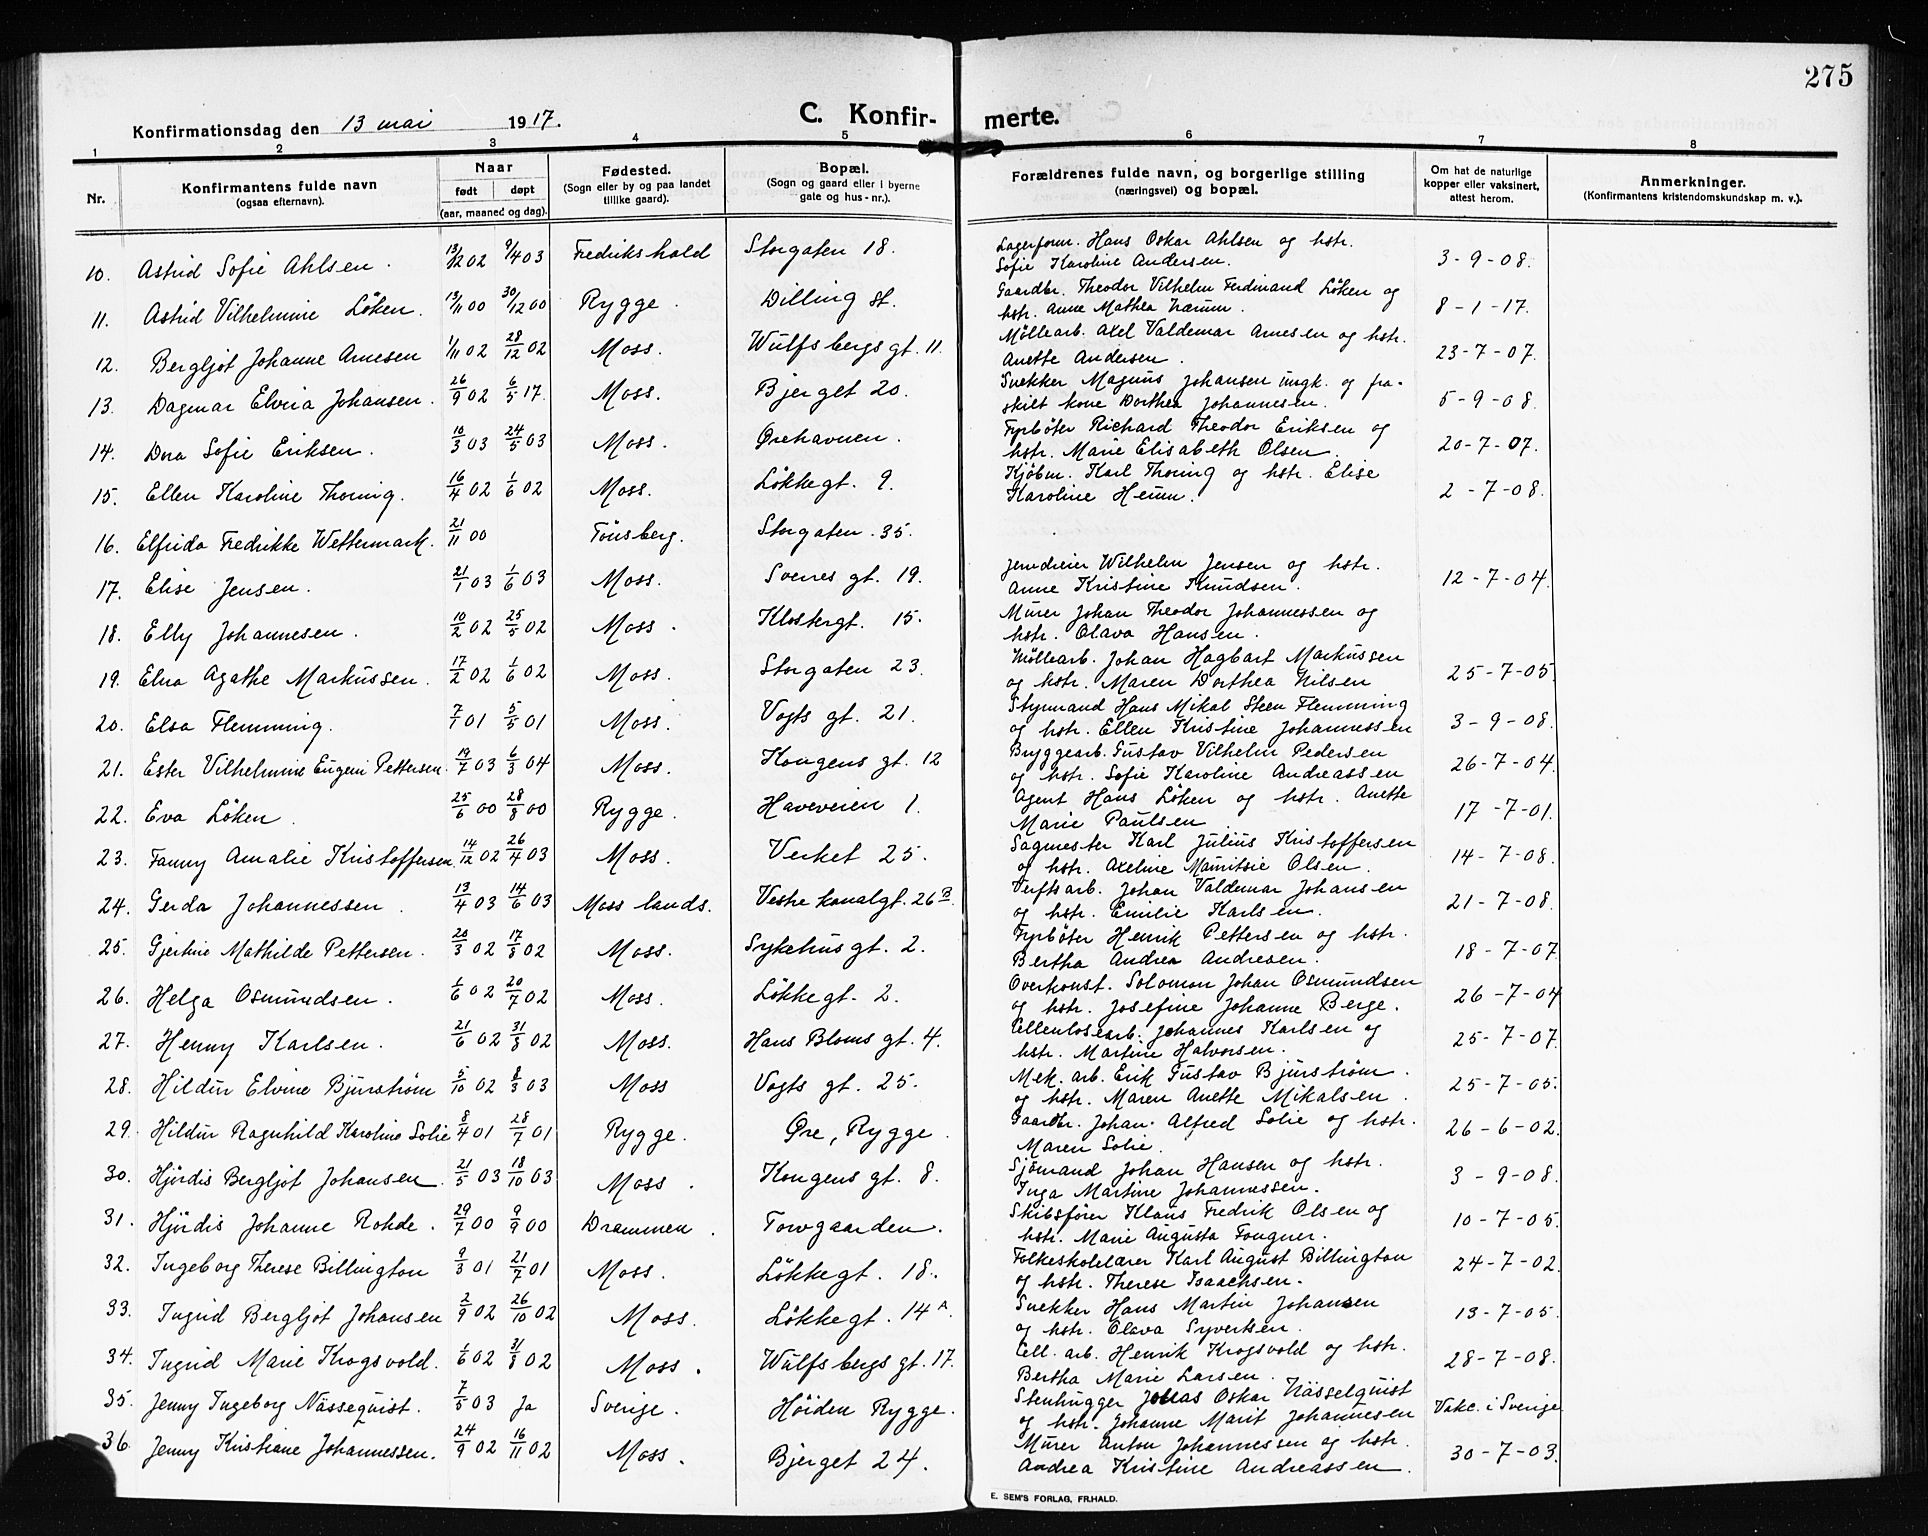 275
Konfirmationsdag den 13 mai 1917.
C. Konfir- merte.
1 2 3 4 5 6 7 8
Nr.
Konfirmantens fulde navn
(ogsaa efternavn).
Naar
født døpt
(aar, maaned og dag).
Fødested.
(Sogn eller by og paa landet
tillike gaard).
Bopæl.
(Sogn og gaard eller i byerne
gate og hus-nr.).
Forældrenes fulde navn, og borgerlige stilling
(næringsvei) og bopæl.
Om hat de naturlige
kopper eller vaksinert,
attest herom.
Anmerkninger.
(Konfirmantens kristendomskundskap m. v.).
10. Astrid Sofie Ahlsen. 13/12 02 9/4 03 Fredrikshald Storgaten 18. Lagerform. Hans Oskar Ahlsen og hstr. 3-9-08.
Sofie Karoline Andersen.
11. Astrid Vilhelmine Löken. 13/11 00 30/12 00 Rygge. Dilling st. Gaardbr. Theodor Vilhelm Ferdinand Löken og 8-1-17.
hstr. Anne Mathea Nærum.
12. Bergljot Johanne Arnesen 1/11 02 28/12 02 Moss. Wulfsbergs gt. 11. Möllearb. Axel Valdemar Arnesen og hstr. 23-7-07.
Anette Andersen.
13. Dagmar Elvira Johansen. 26/9 02 6/5 17. Moss. Bjerget 20. Snekker Magnus Johansen ungk. og fra-
skilt kone Dorthea Johannesen. 5-9-08.
14. Dora Sofie Eriksen. 10/3 03 24/5 03 Moss. Ørehavnen. Fyrböter Richard Theodor Eriksen og 20-7-07.
hstr. Marie Elisabeth Olsen.
15. Ellen Karoline Thoring. 16/4 02 1/6 02 Moss. Lökkegt. 9. Kjöbm. Karl Thoring og hstr. Elise 2-7-08.
Karoline Heum.
16. Elfrida Fredrikke Wettermark. 21/11 00 Tönsberg. Storgaten 35.
17. Elise Jensen. 21/1 03 1/6 03 Moss. Svenes gt. 19. Jerndreier Wilhelm Jensen og hstr. 12-7-04.
Anne Kristine Knudsen.
18. Elly Johannesen. 10/2 02 25/5 02 Moss. Klostergt. 15. Murer Johan Theodor Johannessen og
hstr. Olava Hansen.
19. Elna Agathe Markussen. 17/2 02 1/6 02 Moss. Storgaten 23. Möllearb. Johan Hagbart Markussen 25-7-05.
og hstr. Maren Dorthea Nilsen
20. Elsa Flemming. 7/1 01 5/5 01 Moss. Vogts gt. 21. Styrmand Hans Mikal Steen Flemming 3-9-08.
og hstr. Ellen Kristine Johannessen
21. Ester Vilhelmine Eugeni Pettersen. 19/7 03 6/3 04 Moss. Kongens gt. 12 Bryggearb. Gustav Vilhelm Pedersen 26-7-04.
og hstr. Sofie Karoline Andreassen
22. Eva Löken. 25/6 00 28/8 00 Rygge. Haveveien 1. Agent Hans Löken og hstr. Anette 17-7-01.
Marie Paulsen
23. Fanny Amalie Kristoffersen. 14/12 02 26/4 03 Moss. Verket 25. Sagmester Karl Julius Kristoffersen 14-7-08.
og hstr. Axeline Mauritsie Olsen.
24. Gerda Johannessen. 13/4 03 14/6 03 Moss lands. Vestre kanalgt. 26 B. Verftsarb. Johan Valdemar Johansen 21-7-08.
og hstr. Emilie Karlsen.
25. Gjertine Mathilde Pettersen. 20/3 02 17/8 02 Moss. Sykehusgt. 2. Fyrböter Henrik Pettersen og hstr. 18-7-07
Bertha Andrea Andresen.
26. Helga Osmundsen. 1/6 02 20/7 02 Moss. Lökkegt. 2. Overkonst. Solomon Johan Osmundsen 26-7-04
og hstr. Josefine Johanne Berge.
27. Henny Karlsen. 21/6 02 31/8 02 Moss. Hans Bloms gt. 4. Cellulosearb. Johannes Karlsen og 25-7-07.
hstr. Martine Halvorsen.
28. Hildur Elvine Bjurström 5/10 02 8/3 03 Moss Vogts gt. 25. Mek. arb. Erik Gustav Bjurström. 25-7-05.
og hstr. Maren Anette Mikalsen.
29. Hildur Ragnhild Karoline Solie 8/4 01 28/7 01 Rygge. Øre, Rygge. Gaardbr. Johan Alfred Solie og hstr. 26-6-02.
Maren Solie.
30. Hjördis Bergljot Johansen. 21/5 03 18/10 03 Moss. Kongens gt. 8. Sjömand Johan Hansen og hstr. 3-9-08.
Inga Martine Johannessen.
31. Hjördis Johanne Rohde. 29/7 00 9/9 00 Drammen. Torvgaarden. Skibsförer Klaus Fredrik Olsen og 10-7-05.
hstr. Marie Augusta Fougner.
32. Ingeborg Therese Billington 9/3 01 21/7 01 Moss. Lökkegt. 18. Folkeskolelærer Karl August Billington 24-7-02.
og hstr. Therese Isaachsen.
33. Ingrid Bergljot Johansen 2/9 02 26/10 02 Moss. Lökkegt. 14 A. Snekker Hans Martin Johansen 13-7-05.
og hstr. Olava Syvertsen.
34. Ingrid Marie Krogsvold. 1/6 02 31/8 02 Moss. Wulfsbergs gt. 17. Cell. arb. Henrik Krogsvold og hstr. 28-7-08.
Bertha Marie Larsen.
35. Jenny Ingeborg Nässequist. 7/5 03 Ja Sverige. Höiden Rygge. Stenhugger Jonas Oskar Nässelquist Vakc. i Sverige
og hstr. Johanne Marit Johannesen
36. Jenny Kristiane Johannessen. 24/9 02 16/11 02 Moss. Bjerget 24. Murer Anton Johannessen og hstr. 30-7-03.
Andrea Kristine Andreassen.
E. SEM'S FORLAG, FR.HALD.